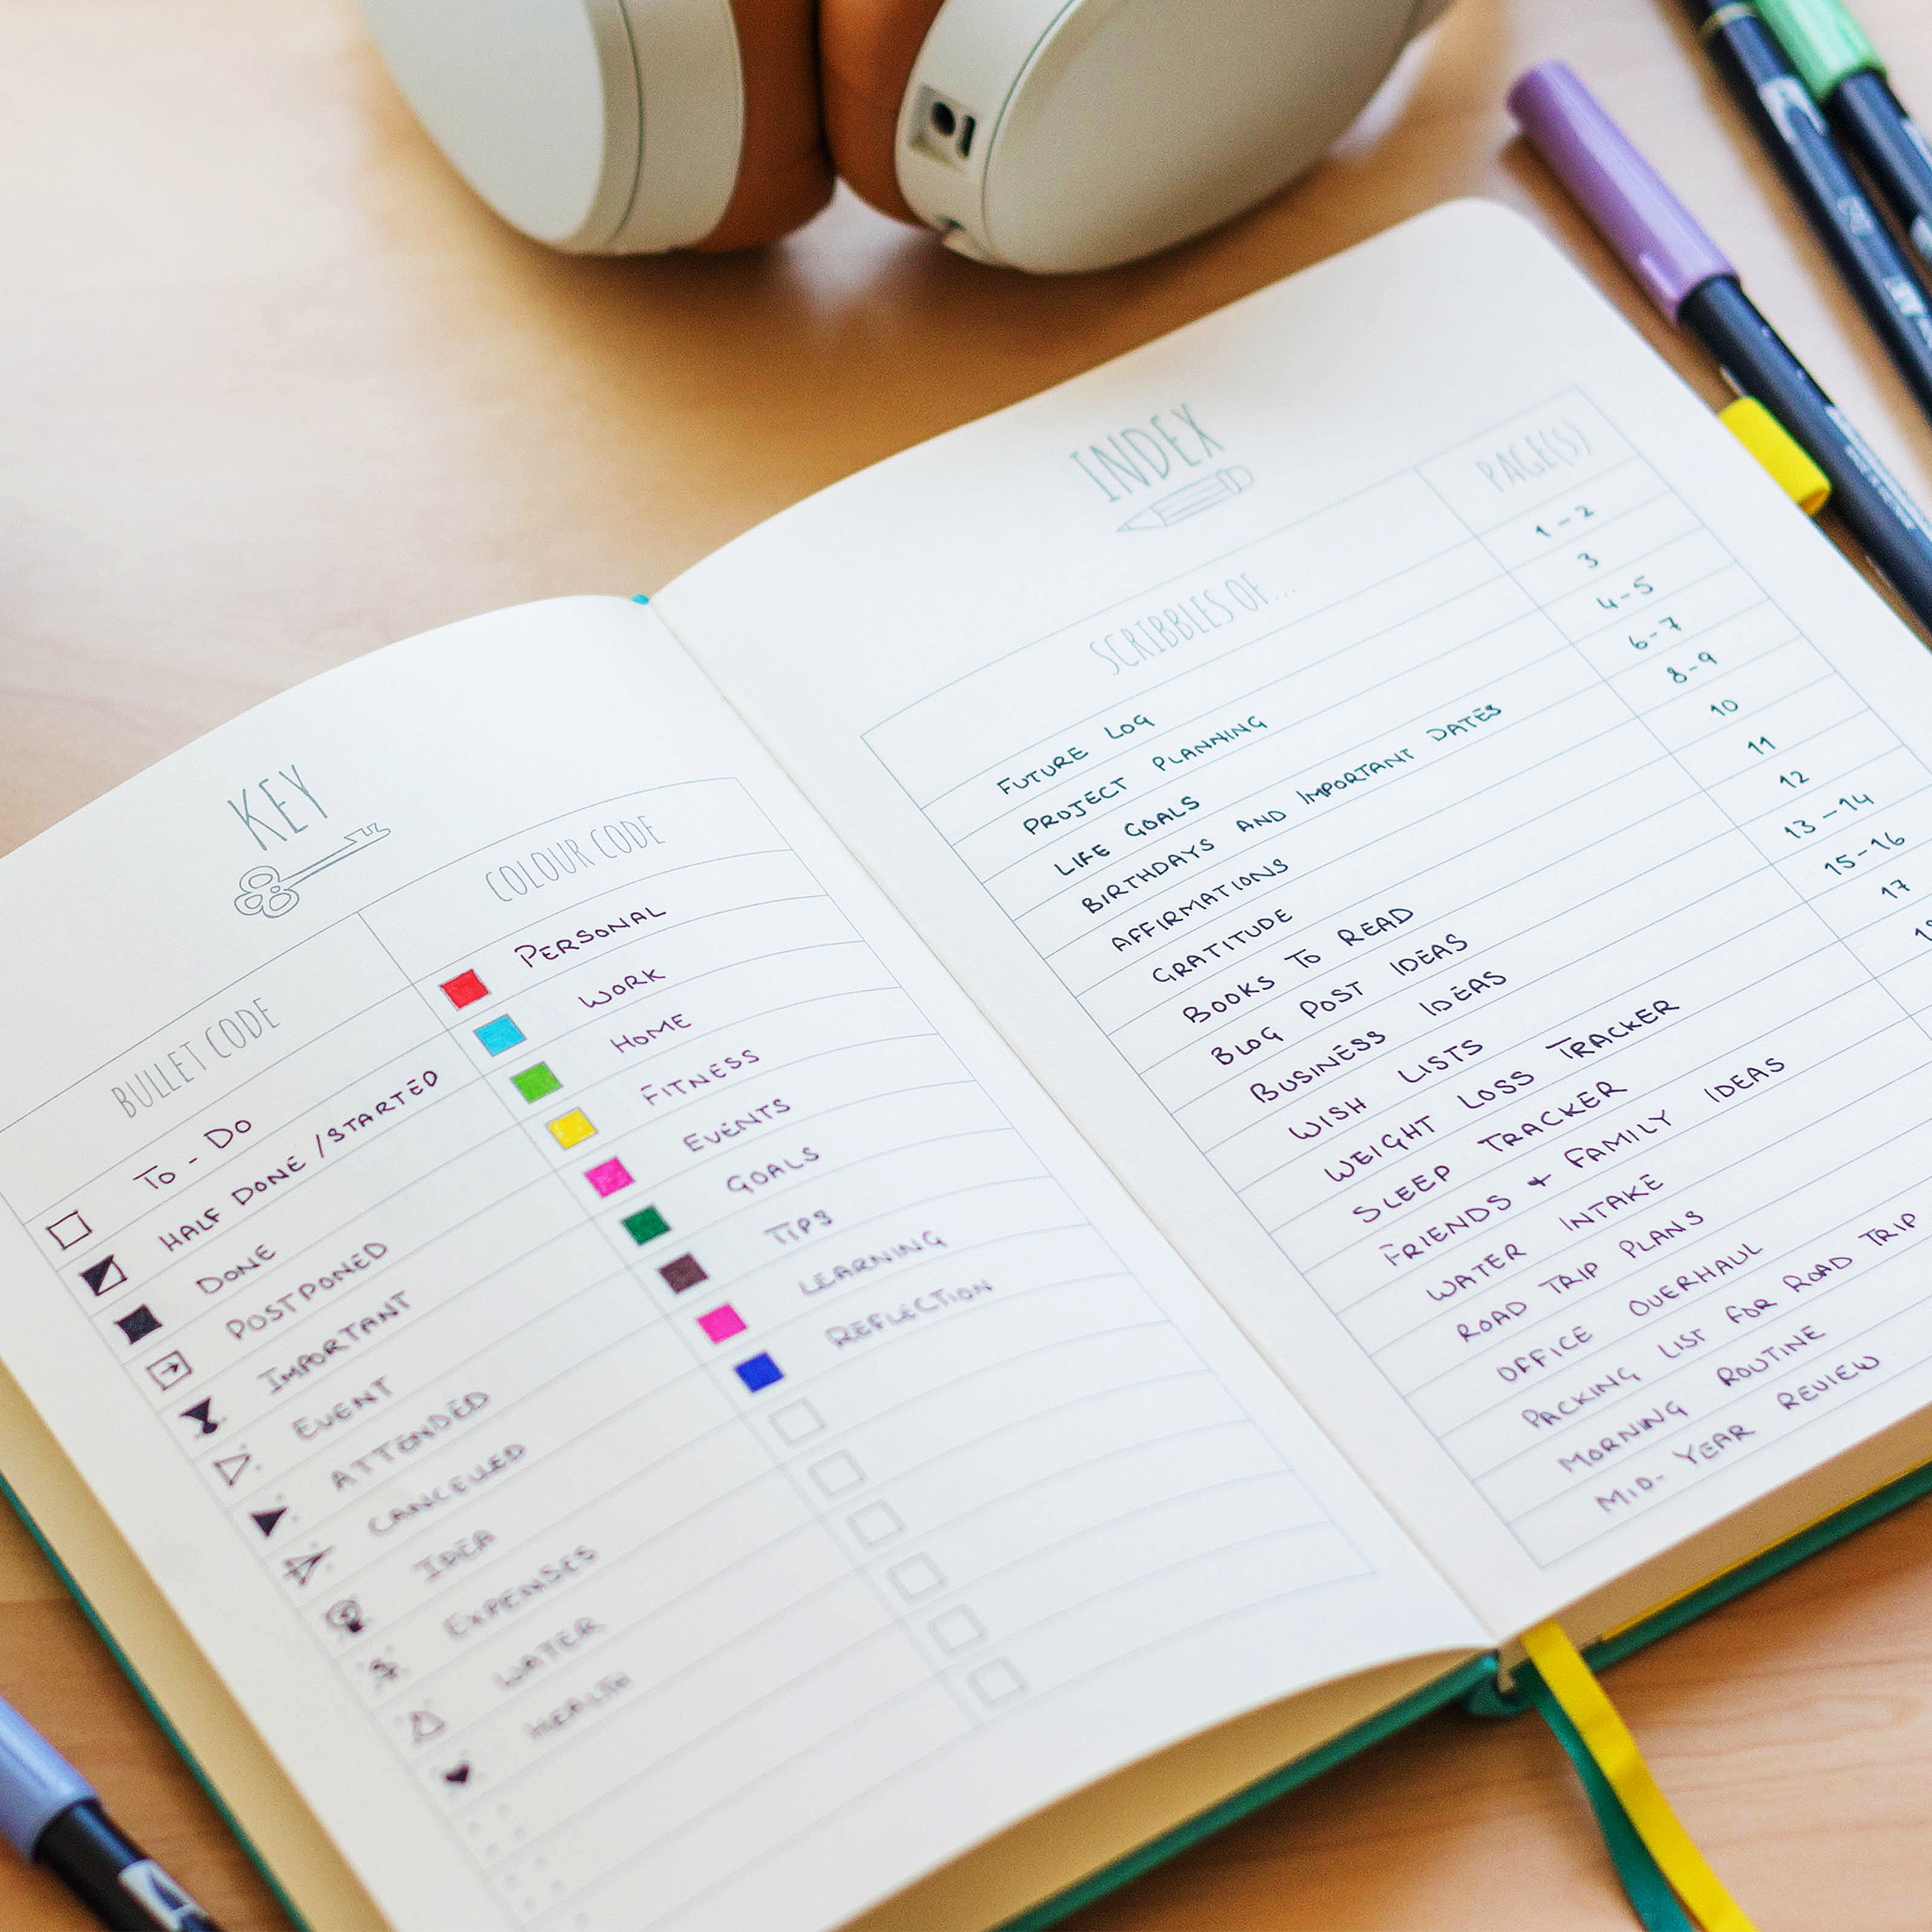 KEY
BULLET CODE
TO - DO
HALF DONE / STARTED
DONE
POSTPONED
IMPORTANT
EVENT
ATTENDED
CANCELLED
IDEA
EXPENSES
WATER
HEALTH
COLOUR CODE
PERSONAL
WORK
HOME
FITNESS
EVENTS
GOALS
TIPS
LEARNING
REFLECTION
INDEX
SCRIBBLES OF... PAGE(S)
FUTURE LOG 1-2
PROJECT PLANNING 3
LIFE GOALS 4-5
BIRTHDAYS AND IMPORTANT DATES 6-7
AFFIRMATIONS 8-9
GRATITUDE 10
BOOKS TO READ 11
BLOG POST IDEAS 12
BUSINESS IDEAS 13-14
WISH LISTS 15-16
WEIGHT LOSS TRACKER 17
SLEEP TRACKER
FRIENDS + FAMILY IDEAS
WATER INTAKE
ROAD TRIP PLANS
OFFICE OVERHAUL
PACKING LIST FOR ROAD TRIP
MORNING ROUTINE
MID-YEAR REVIEW